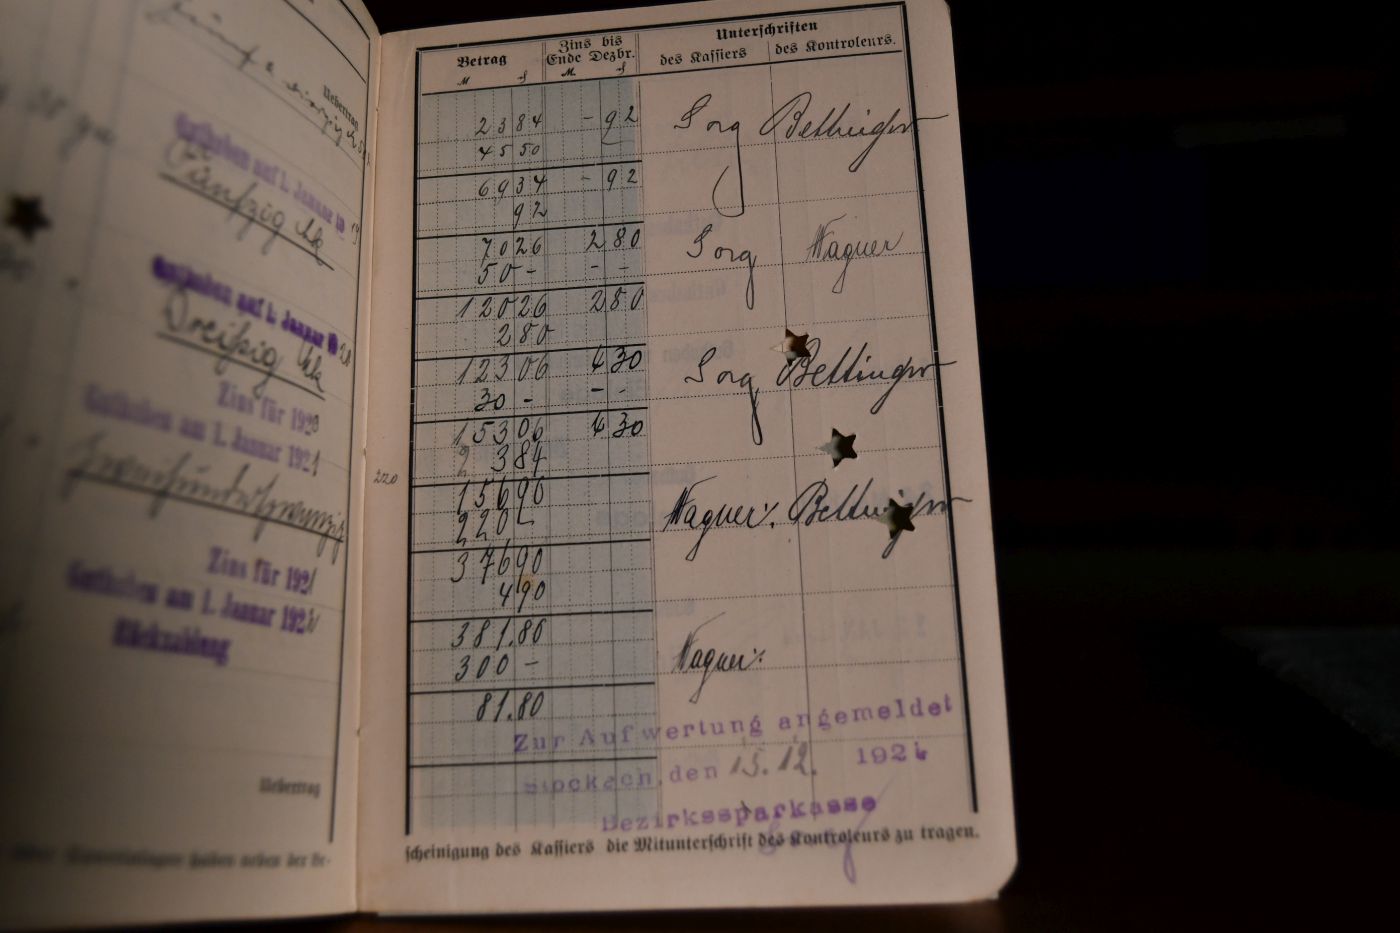 Uebertrag
Guthaben auf 1. Januar 19 19
Fünfzig Mk
Guthaben auf 1. Januar 1920
Dreißig Mk
Zins für 1920
Guthaben am 1. Januar 1921
Zweihundertzwanzig
Zins für 1921
Guthaben am 1. Januar 192
Rückzahlung
Uebertrag
haben neben der Be-
Betrag
Zins bis Ende Dezbr.
Unterschriften
des Kassiers
des Kontroleurs.
M ₰ M. ₰
23 84 - 92 Sorg Bettinger
45 50
69 34 - 92
92
70 26 2 80 Sorg Wagner
50 - - -
120 26 2 80
2 80
123 06 4 30 Sorg Bettinger
30 - - -
153 06 4 30
3 84
156 90 Wagner Bettinger
220 220 -
376 90
4 90
381.80
300 - Wagner
81.80
Zur Aufwertung angemeldet
Stockach, den 15.12. 192
Bezirkssparkasse
scheinigung des Kassiers die Mitunterschrift des Kontroleurs zu tragen.